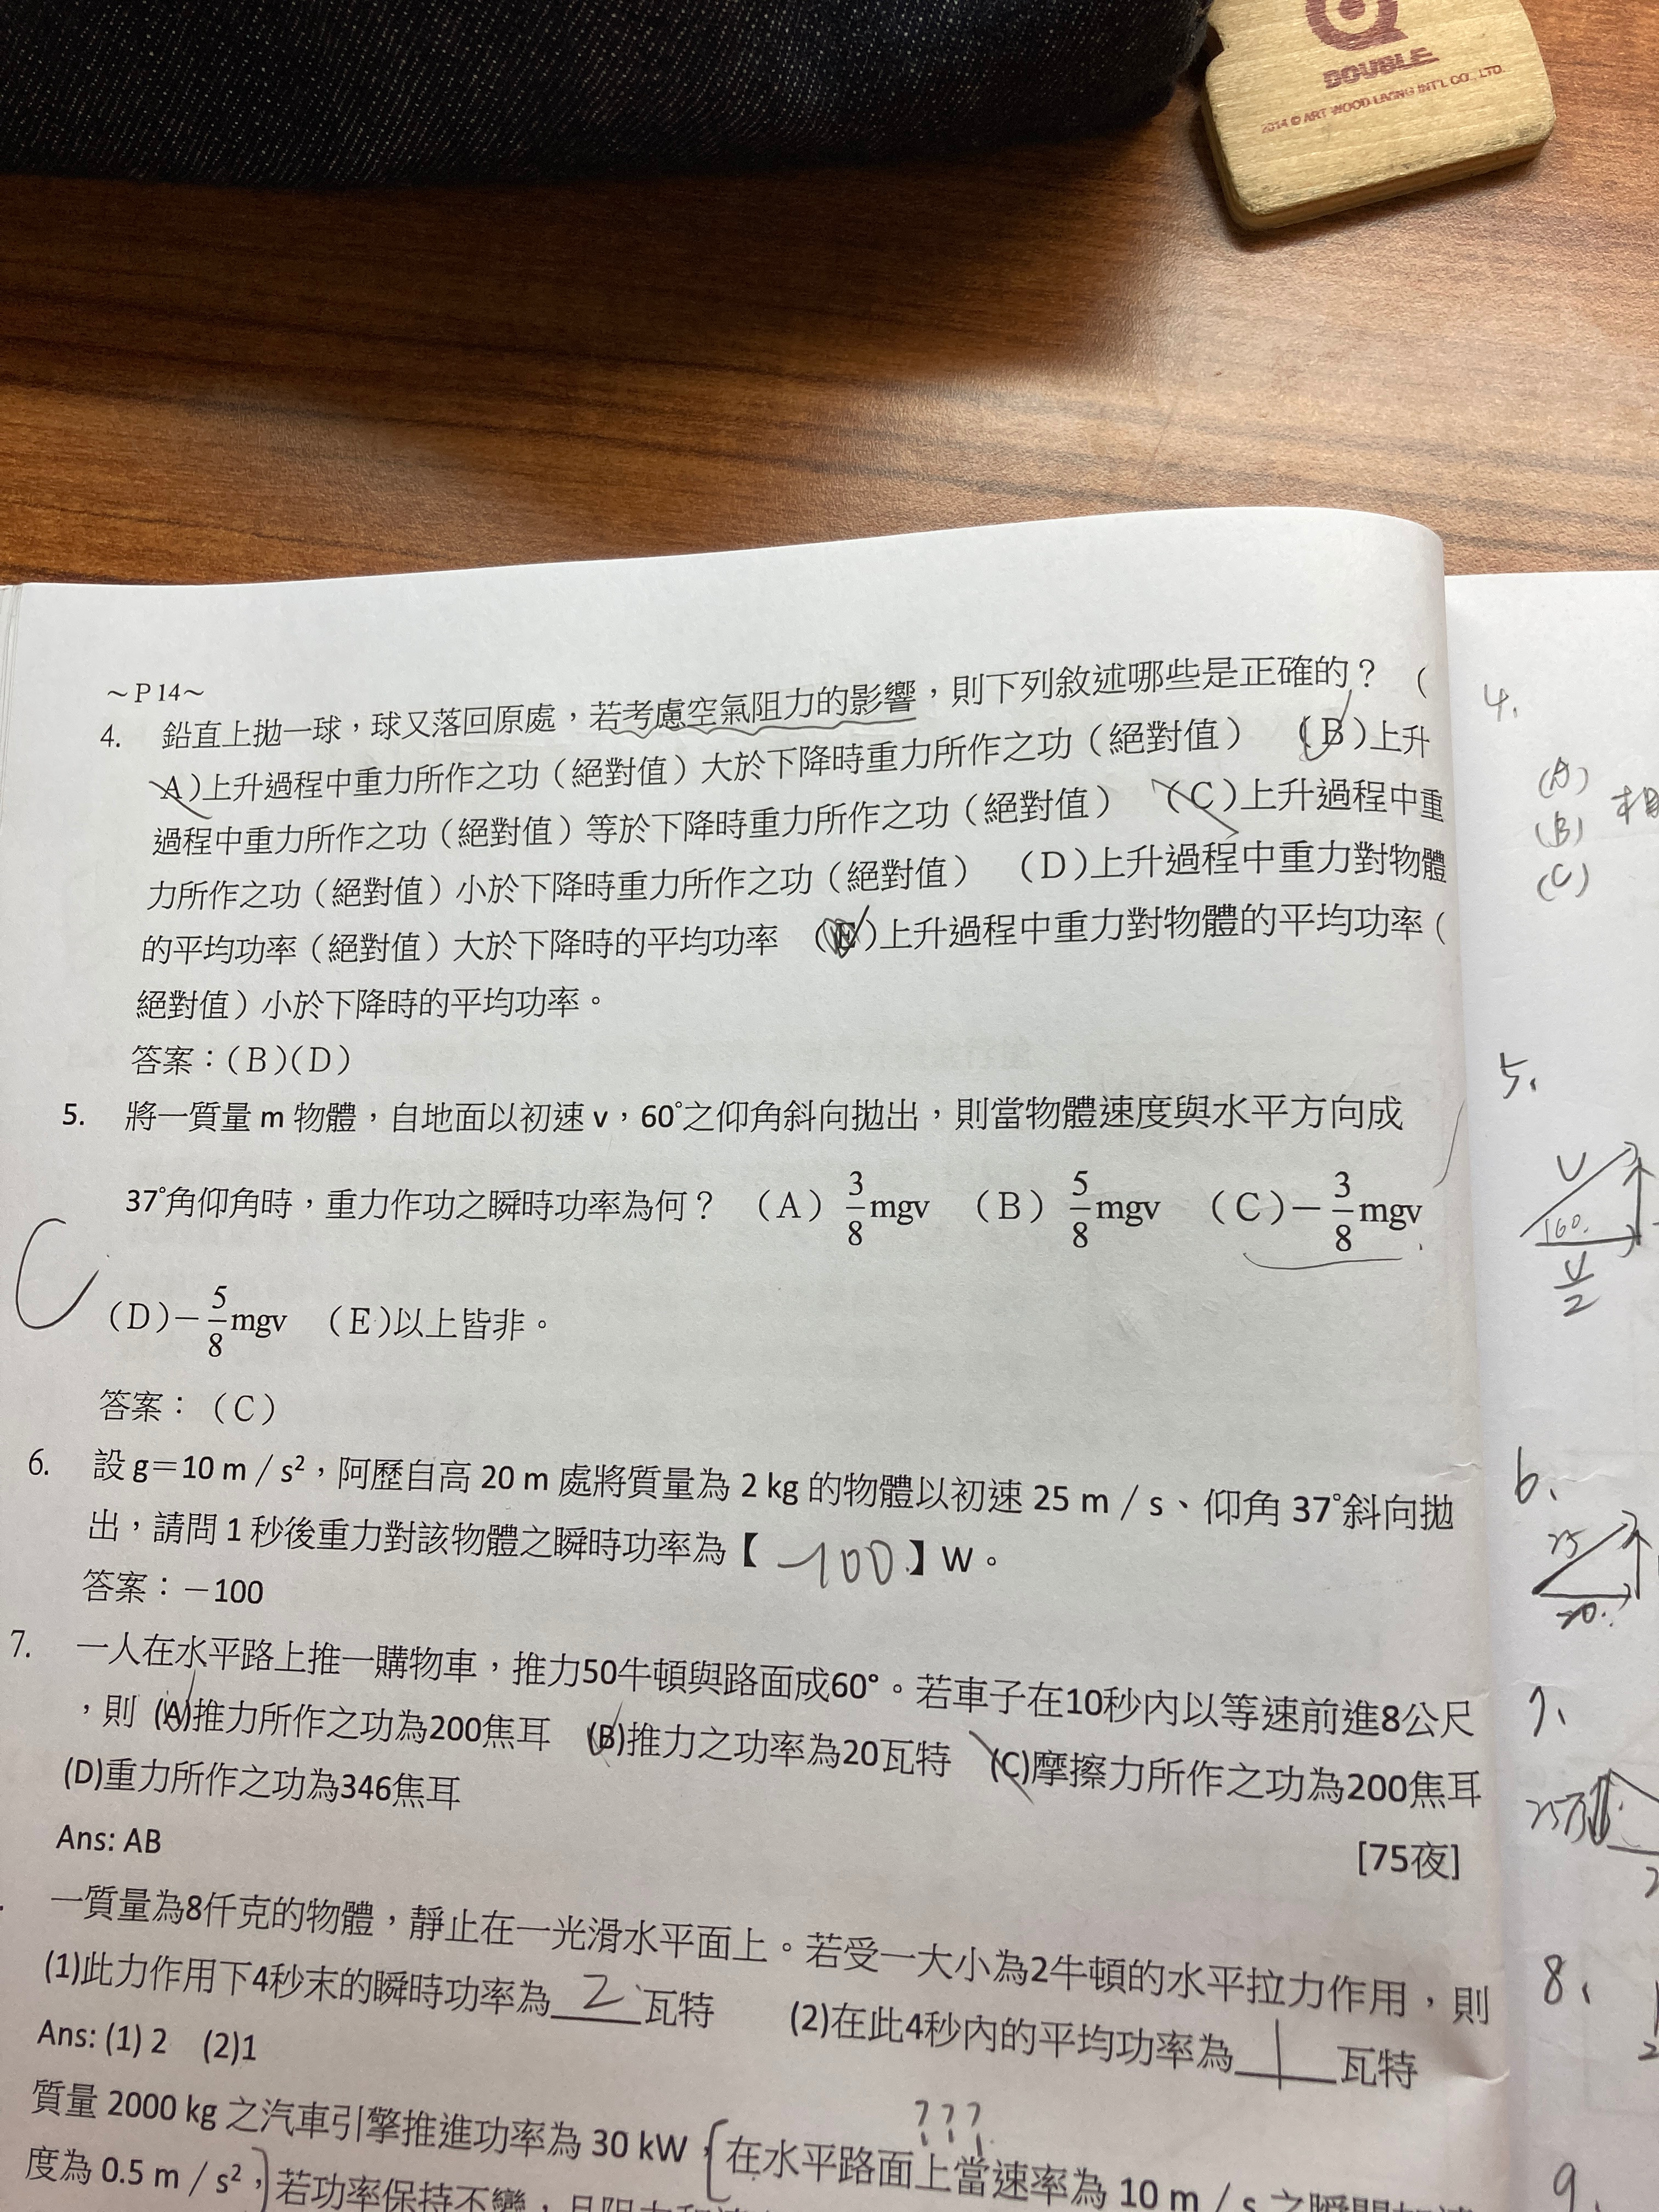 DOUBLE
2014 © ART WOOD LIVING INT'L CO., LTD.
～P 14～
4. 鉛直上拋一球，球又落回原處，若考慮空氣阻力的影響，則下列敘述哪些是正確的？（
A)上升過程中重力所作之功（絕對值）大於下降時重力所作之功（絕對值） (B)上升
過程中重力所作之功（絕對值）等於下降時重力所作之功（絕對值） (C)上升過程中重
力所作之功（絕對值）小於下降時重力所作之功（絕對值） (D)上升過程中重力對物體
的平均功率（絕對值）大於下降時的平均功率 (E)上升過程中重力對物體的平均功率（
絕對值）小於下降時的平均功率。
答案：(B)(D)
5. 將一質量 m 物體，自地面以初速 v，60°之仰角斜向拋出，則當物體速度與水平方向成
37°角仰角時，重力作功之瞬時功率為何？ (A) 3/8 mgv (B) 5/8 mgv (C)－3/8 mgv
C
(D)－5/8 mgv (E)以上皆非。
答案： (C)
6. 設 g＝10 m / s²，阿歷自高 20 m 處將質量為 2 kg 的物體以初速 25 m / s、仰角 37°斜向拋
出，請問 1 秒後重力對該物體之瞬時功率為【 -100 】W。
答案：－100
7. 一人在水平路上推一購物車，推力50牛頓與路面成60°。若車子在10秒內以等速前進8公尺
，則 (A)推力所作之功為200焦耳 (B)推力之功率為20瓦特 (C)摩擦力所作之功為200焦耳
(D)重力所作之功為346焦耳
Ans: AB [75夜]
一質量為8仟克的物體，靜止在一光滑水平面上。若受一大小為2牛頓的水平拉力作用，則
(1)此力作用下4秒末的瞬時功率為 2 瓦特 (2)在此4秒內的平均功率為 1 瓦特
Ans: (1) 2 (2)1
???
質量 2000 kg 之汽車引擎推進功率為 30 kW，在水平路面上當速率為 10 m / s 之瞬間加速
度為 0.5 m / s²，若功率保持不變，且阻力和速
4.
(A)
(B) 相
(C)
5.
V
60°
V/2
6.
25
20
7.
8.
9.